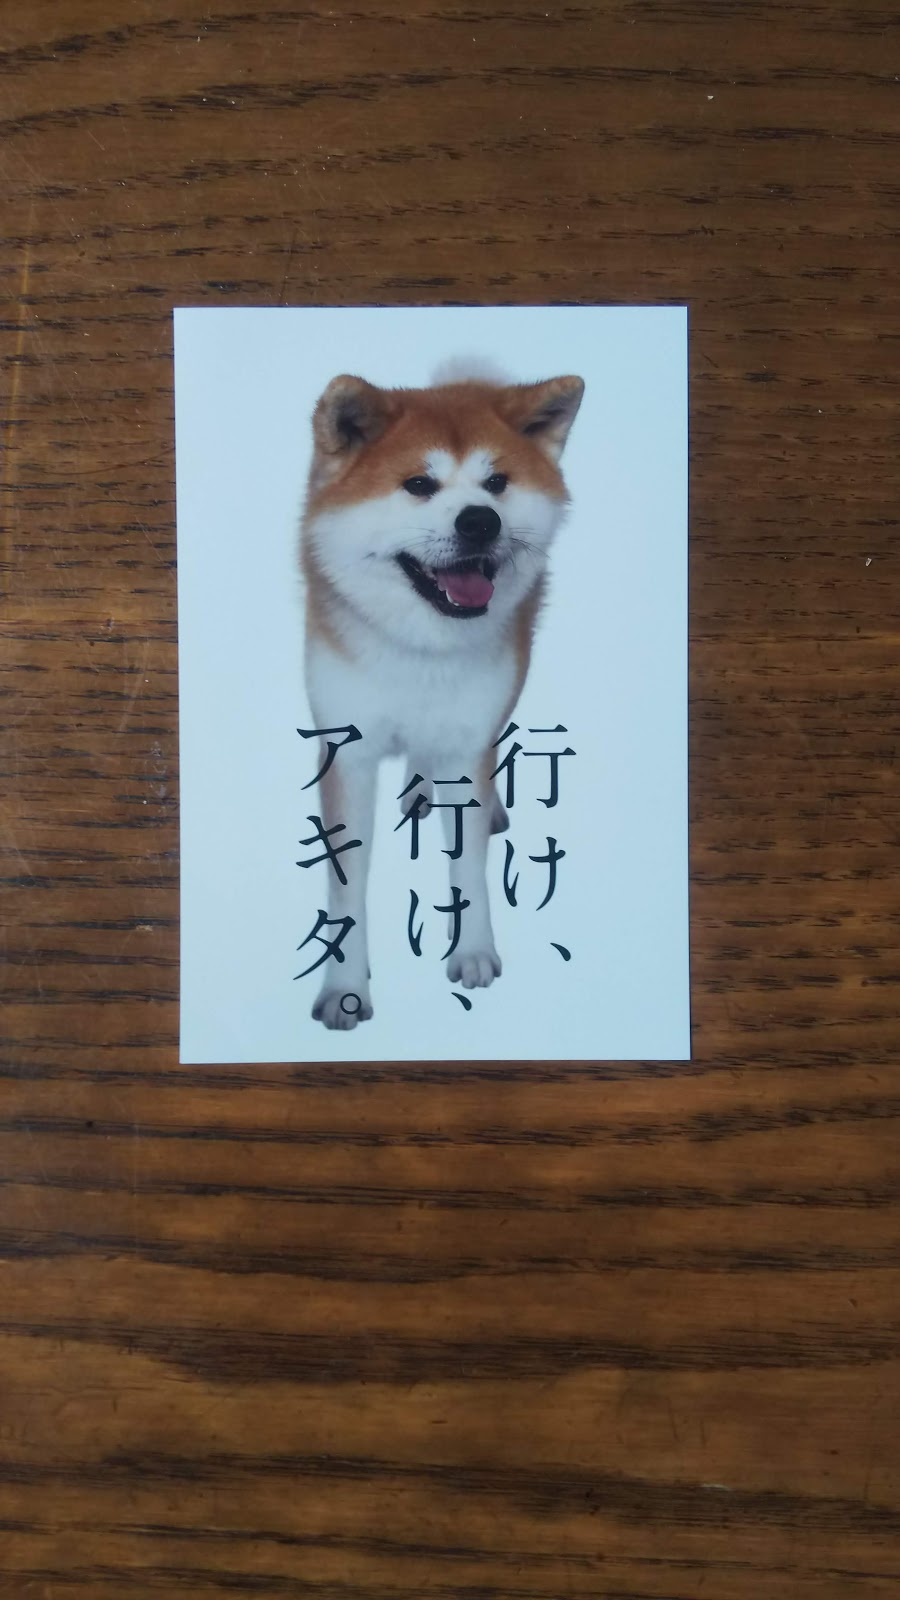 行け、
行け、
アキタ。